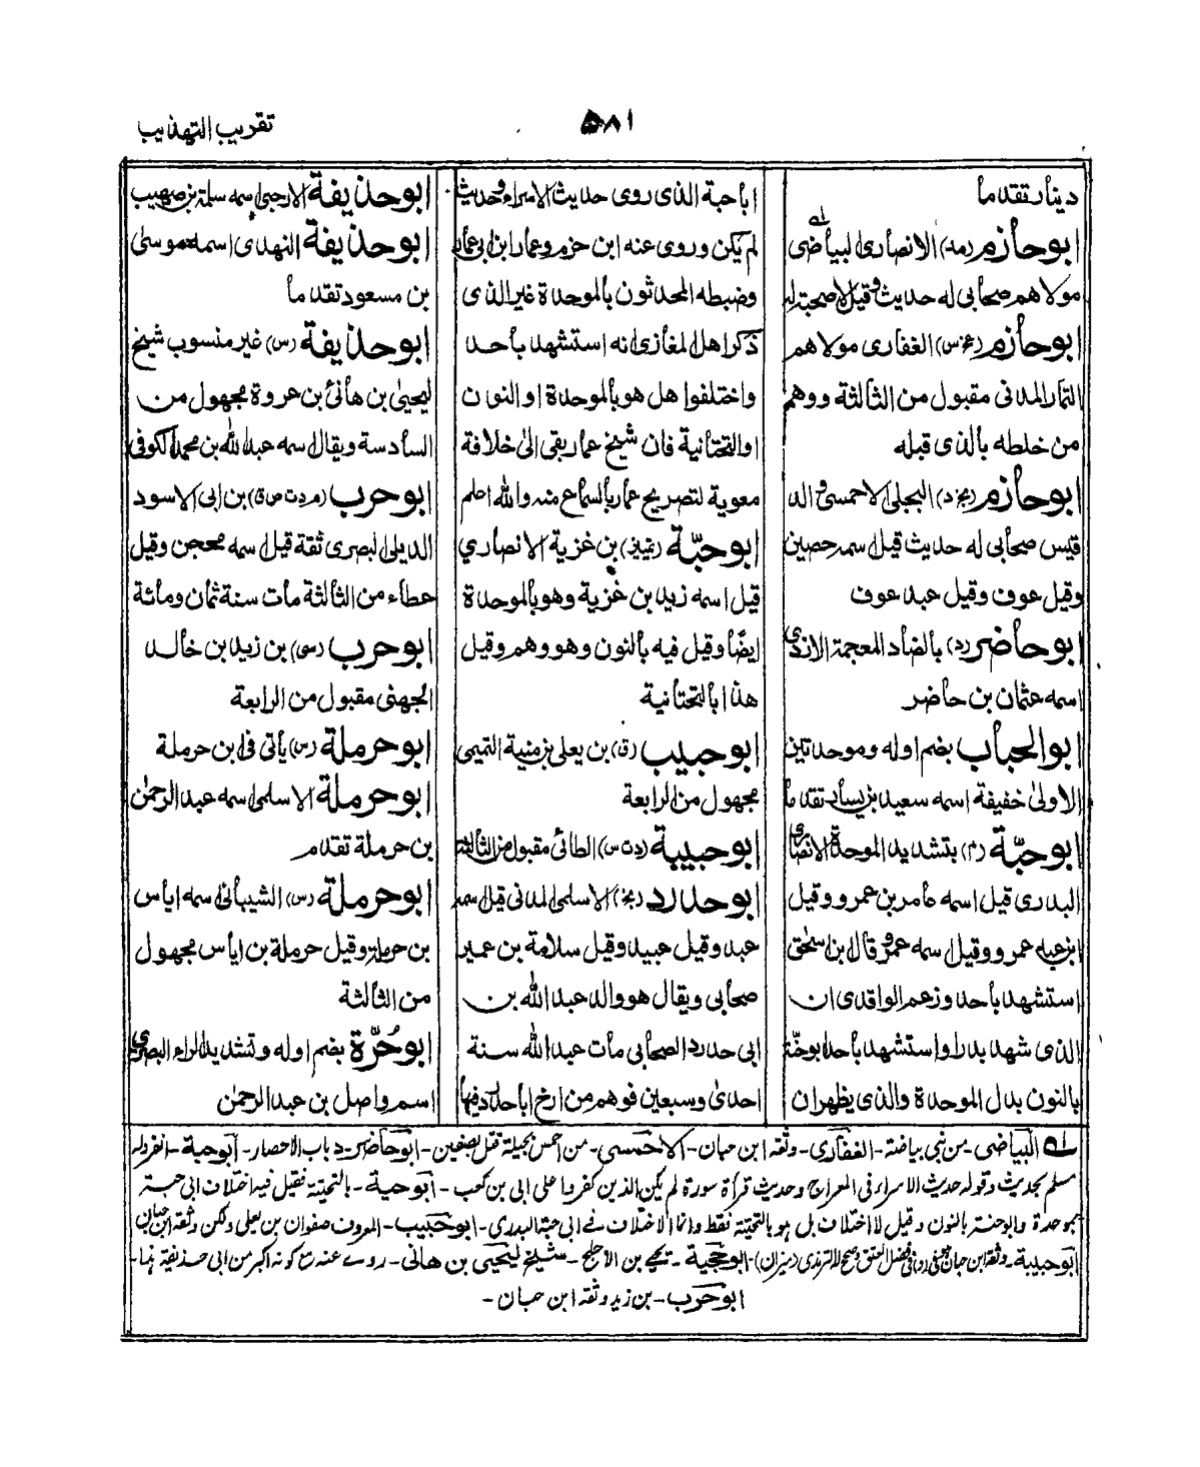 تقريب التهذيب
٥٨١
دينار تقدما
ابوحازم (مد) الانصاري البياضي
مولاهم صحابي له حديث وقيل لا صحبة له
ابوحازم (عس) الغفاري مولاهم
التمار المدني مقبول من الثالثة ووهم
من خلطه بالذي قبله
ابوحازم (بخ د) البجلي الاحمسي والد
قيس صحابي له حديث قيل اسمه حصين
وقيل عوف وقيل عبد عوف
ابوحاضر (د) بالضاد المعجمة الازدي
اسمه عثمان بن حاضر
ابوالحباب بضم اوله وموحدتين
الاولى خفيفة اسمه سعيد بن يسار تقدما
ابوحبّة (م) بتشديد الموحدة الانصاري
البدري قيل اسمه عامر بن عمرو وقيل
ابن عبد عمرو وقيل اسمه عمرو وقال ابن اسحٰق
استشهد باحد وزعم الواقدي ان
الذي شهد بدرا واستشهد باحد ابوحنّة
بالنون بدل الموحدة والذي يظهر ان
اباحبة الذي روى حديث الاسراء وحديث
لم يكن وروى عنه ابن حزم وعمار ابن ابي عمار
وضبطه المحدثون بالموحدة غير الذي
ذكر اهل المغازي انه استشهد باحد
واختلفوا هل هو بالموحدة او النون
او التحتانية فان شيخ عمار بقي الى خلافة
معوية لتصريح عمار بالسماع منه والله اعلم
ابوحبّة (تمييز) بن غزية الانصاري
قيل اسمه زيد بن غزية وهو بالموحدة
ايضًا وقيل فيه بالنون وهو وهم وقيل
هذا بالتحتانية
ابوحبيب (ق) بن يعلى بن منية التميمي
مجهول من الرابعة
ابوحبيبة (د ت س) الطائي مقبول من الثالثة
ابوحدرد (بخ) الاسلمي المدني قيل اسمه
عبد وقيل عبيد وقيل سلامة بن عمير
صحابي ويقال هو والد عبد الله بن
ابي حدرد الصحابي مات عبد الله سنة
احدى وسبعين فوهم من ارخ اباحدرد فيها
ابوحذيفة الارحبي اسمه سلمة بن صهيب
ابوحذيفة النهدي اسمه موسى
بن مسعود تقدما
ابوحذيفة (س) غير منسوب شيخ
ليحيىٰ بن هانئ بن عروة مجهول من
السادسة ويقال اسمه عبد الله بن محمد الكوفي
ابوحرب (م د ت ص ق) بن ابي الاسود
الديلي البصري ثقة قيل اسمه محجن وقيل
عطاء من الثالثة مات سنة ثمان ومائة
ابوحرب (سي) بن زيد بن خالد
الجهني مقبول من الرابعة
ابوحرملة (س) ياتي في ابن حرملة
ابوحرملة الاسلمي اسمه عبد الرحمٰن
بن حرملة تقدم
ابوحرملة (س) الشيباني اسمه اياس
بن حرملة وقيل حرملة بن اياس مجهول
من الثالثة
ابوحُرّة بضم اوله وتشديد الراء البصري
اسمه واصل بن عبد الرحمٰن
له البياضي- من بني بياضة- الغفاري- وثقه ابن حبان- الاحمسي- من احمس بجيلة قتل بصفين- ابوحاضر- د باب الاحصار- ابوحبة- انفرد له
مسلم بحديث وقوله حديث الاسراء في المعراج وحديث قرأة سورة لم يكن الذين كفروا على ابي بن كعب- ابوحية- بالتحتية فقيل فيه اختلاف ابي حبة
بموحدة وابوحنة بالنون وقيل لا اختلاف بل هو بالتحتية فقط وانما الاختلاف في ابي حبة البدري- ابوحبيب- المعروف صفوان بن يعلى ولكن وثقه ابن حبان
ابوحبيبة- وثقه ابن حبان في فضل العتق وصحح له الترمذي (ميزان)- ابوحجية- يحيے بن الاجلح- شيخ ليحيى بن هاني- روى عنه مع كونه اكبر من ابي حذيفة هذا-
ابوحرب- بن زيد وثقه ابن حبان-